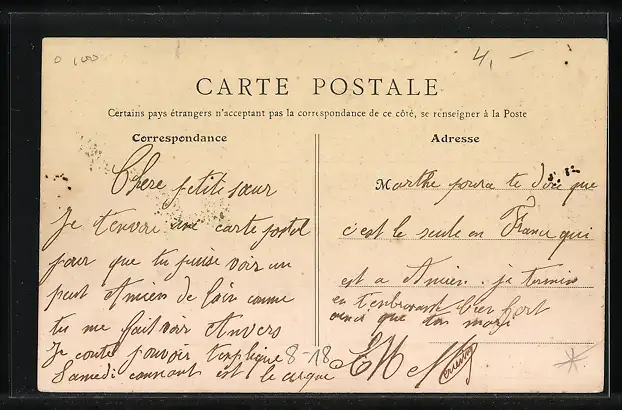 4,-
CARTE POSTALE
Certains pays étrangers n'acceptant pas la correspondance de ce côté, se renseigner à la Poste
Correspondance
Chere petite sœur
Je t'envoie une carte postal
pour que tu puise voir un
peut Amiens de loin comme
tu me fait voir Anvers
Je conte pouvoir t'explique 8-18
Samedi courrant est le cirque
Adresse
Marthe poura te dire que
c'est le seule en France qui
est a Amiens. je termine
en t'embrassant bien fort
ainsi que ton mari